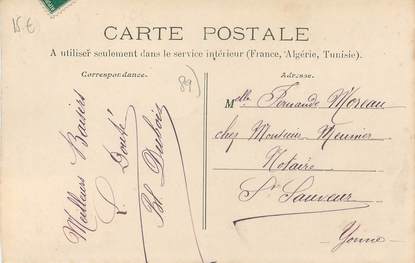 15 €
CARTE POSTALE
A utiliser seulement dans le service intérieur (France, Algérie, Tunisie).
Correspondance.
Adresse.
89)
Meilleurs Baisers
Bl. Dubois
Melle Fernande Moreau
chez Monsieur Meunier
Notaire
St Sauveur
Yonne